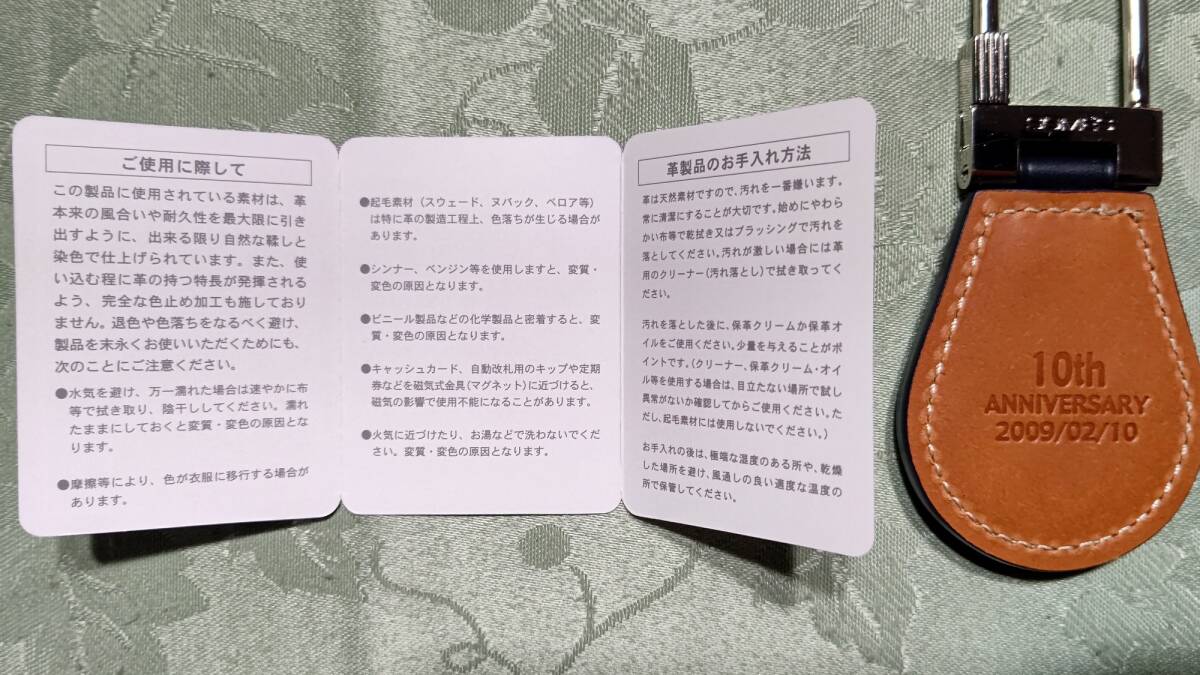 ご使用に際して
この製品に使用されている素材は、革
本来の風合いや耐久性を最大限に引き
出すように、出来る限り自然な鞣しと
染色で仕上げられています。また、使
い込む程に革の持つ特長が発揮される
よう、完全な色止め加工も施しており
ません。退色や色落ちをなるべく避け、
製品を末永くお使いいただくためにも、
次のことにご注意ください。
●水気を避け、万一濡れた場合は速やかに布
等で拭き取り、陰干ししてください。濡れ
たままにしておくと変質・変色の原因とな
ります。
●摩擦等により、色が衣服に移行する場合が
あります。
●起毛素材（スウェード、ヌバック、ベロア等）
は特に革の製造工程上、色落ちが生じる場合が
あります。
●シンナー、ベンジン等を使用しますと、変質・
変色の原因となります。
●ビニール製品などの化学製品と密着すると、変
質・変色の原因となります。
●キャッシュカード、自動改札用のキップや定期
券などを磁気式金具（マグネット）に近づけると、
磁気の影響で使用不能になることがあります。
●火気に近づけたり、お湯などで洗わないでくだ
さい。変質・変色の原因となります。
革製品のお手入れ方法
革は天然素材ですので、汚れを一番嫌います。
常に清潔にすることが大切です。始めにやわら
かい布等で乾拭き又はブラッシングで汚れを
落としてください。汚れが激しい場合には革
用のクリーナー（汚れ落とし）で拭き取ってく
ださい。
汚れを落とした後に、保革クリームか保革オ
イルをご使用ください。少量を与えることがポ
イントです。（クリーナー、保革クリーム・オイ
ル等を使用する場合は、目立たない場所で試し
異常がないか確認してからご使用ください。た
だし、起毛素材には使用しないでください。）
お手入れの後は、極端な湿度のある所や、乾燥
した場所を避け、風通しの良い適度な温度の
所で保管してください。
10th
ANNIVERSARY
2009/02/10